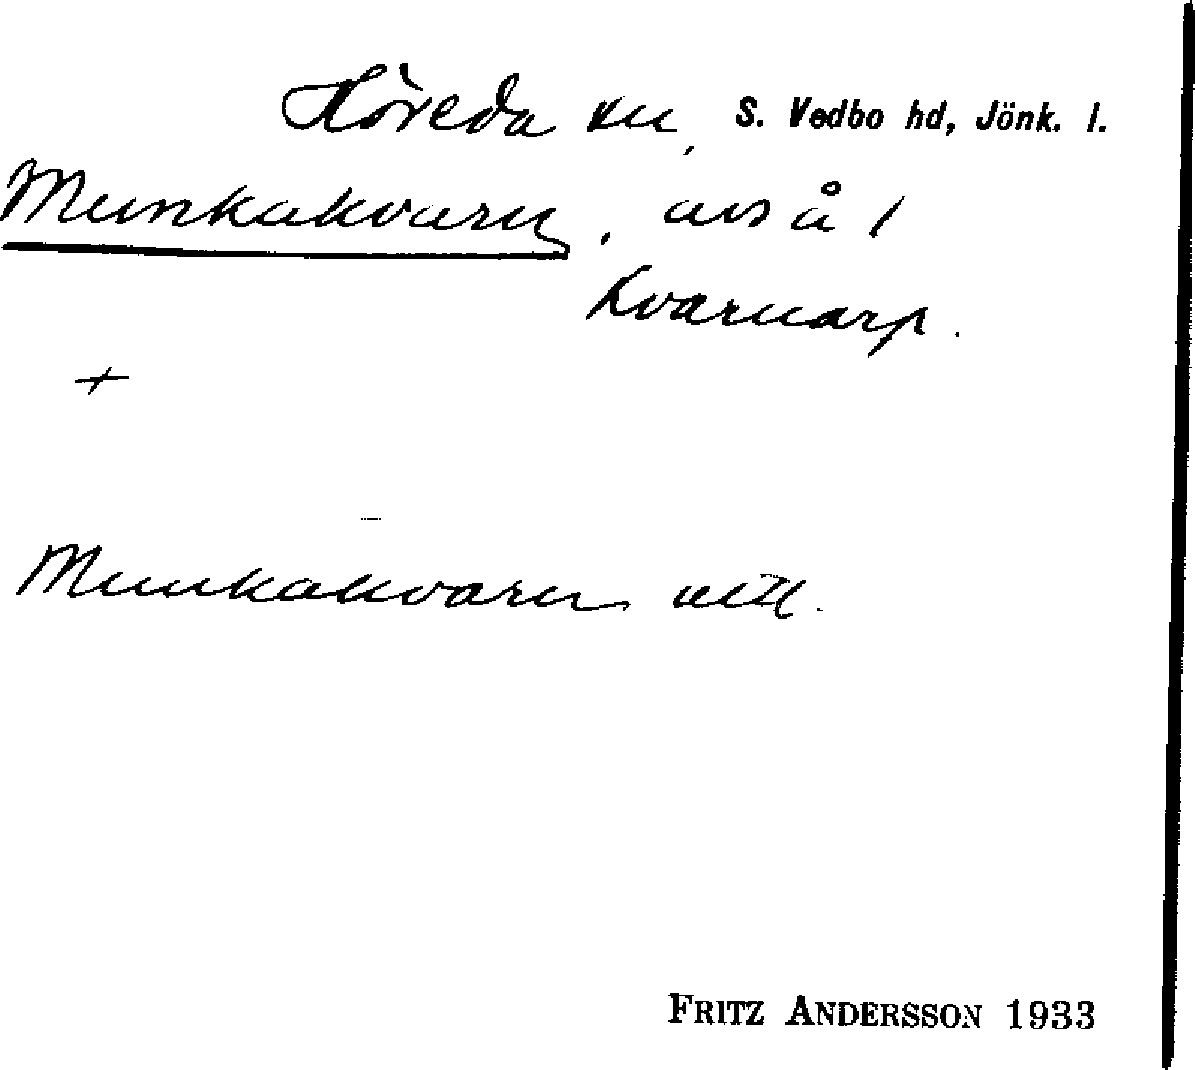 Höreda sn, S. Vedbo hd, Jönk. l.
Munkakvarn, avs å 1
Kvarnarp.
+
Munkakvarn uttl.
FRITZ ANDERSSON 1933